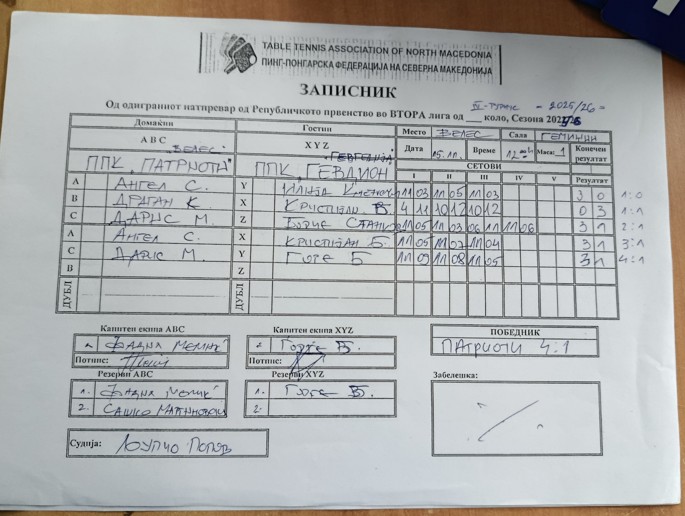 TABLE TENNIS ASSOCIATION OF NORTH MACEDONIA
ПИНГ-ПОНГАРСКА ФЕДЕРАЦИЈА НА СЕВЕРНА МАКЕДОНИЈА
ЗАПИСНИК
2025/26
Од одиграниот натпревар од Републичкото првенство во ВТОРА лига од ___ коло, Сезона
Домаќин Гостин Место ВЕЛЕС Сала ГЕМИЏИИ
A B C ВЕЛЕС X Y Z ГЕВГЕЛИЈА Дата 15.10. Време 12 Маса: 1 Конечен резултат
ППК "ПАТРИОТИ" ППК ГЕВДИОН СЕТОВИ
I II III IV V Резултат
A АНГЕЛ С. Y ИЛИЈА 11 03 11 05 11 03 3 0 1:0
B ДРАГАН К. X КРИСТИЈАН Б. 4 11 10 12 10 12 0 3 1:1
C ДАРИС М. Z БОРИС 11 05 11 03 06 11 11 06 3 1 2:1
A АНГЕЛ С. X КРИСТИЈАН Б. 11 05 11 07 11 04 3 1 3:1
C ДАРИС М. Y ЃОРЃЕ Б 11 09 11 08 11 05 3 1 4:1
B Z
ДУБЛ ДУБЛ
Капитен екипа ABC Капитен екипа XYZ ПОБЕДНИК
ЃОРЃЕ Б. ПАТРИОТИ 4:1
Потпис: Потпис:
Резерви ABC Резерви XYZ Забелешка:
1. 1. ЃОРЃЕ Б.
2. САШКО 2.
Судија: ЉУПЧО ПОПОВ